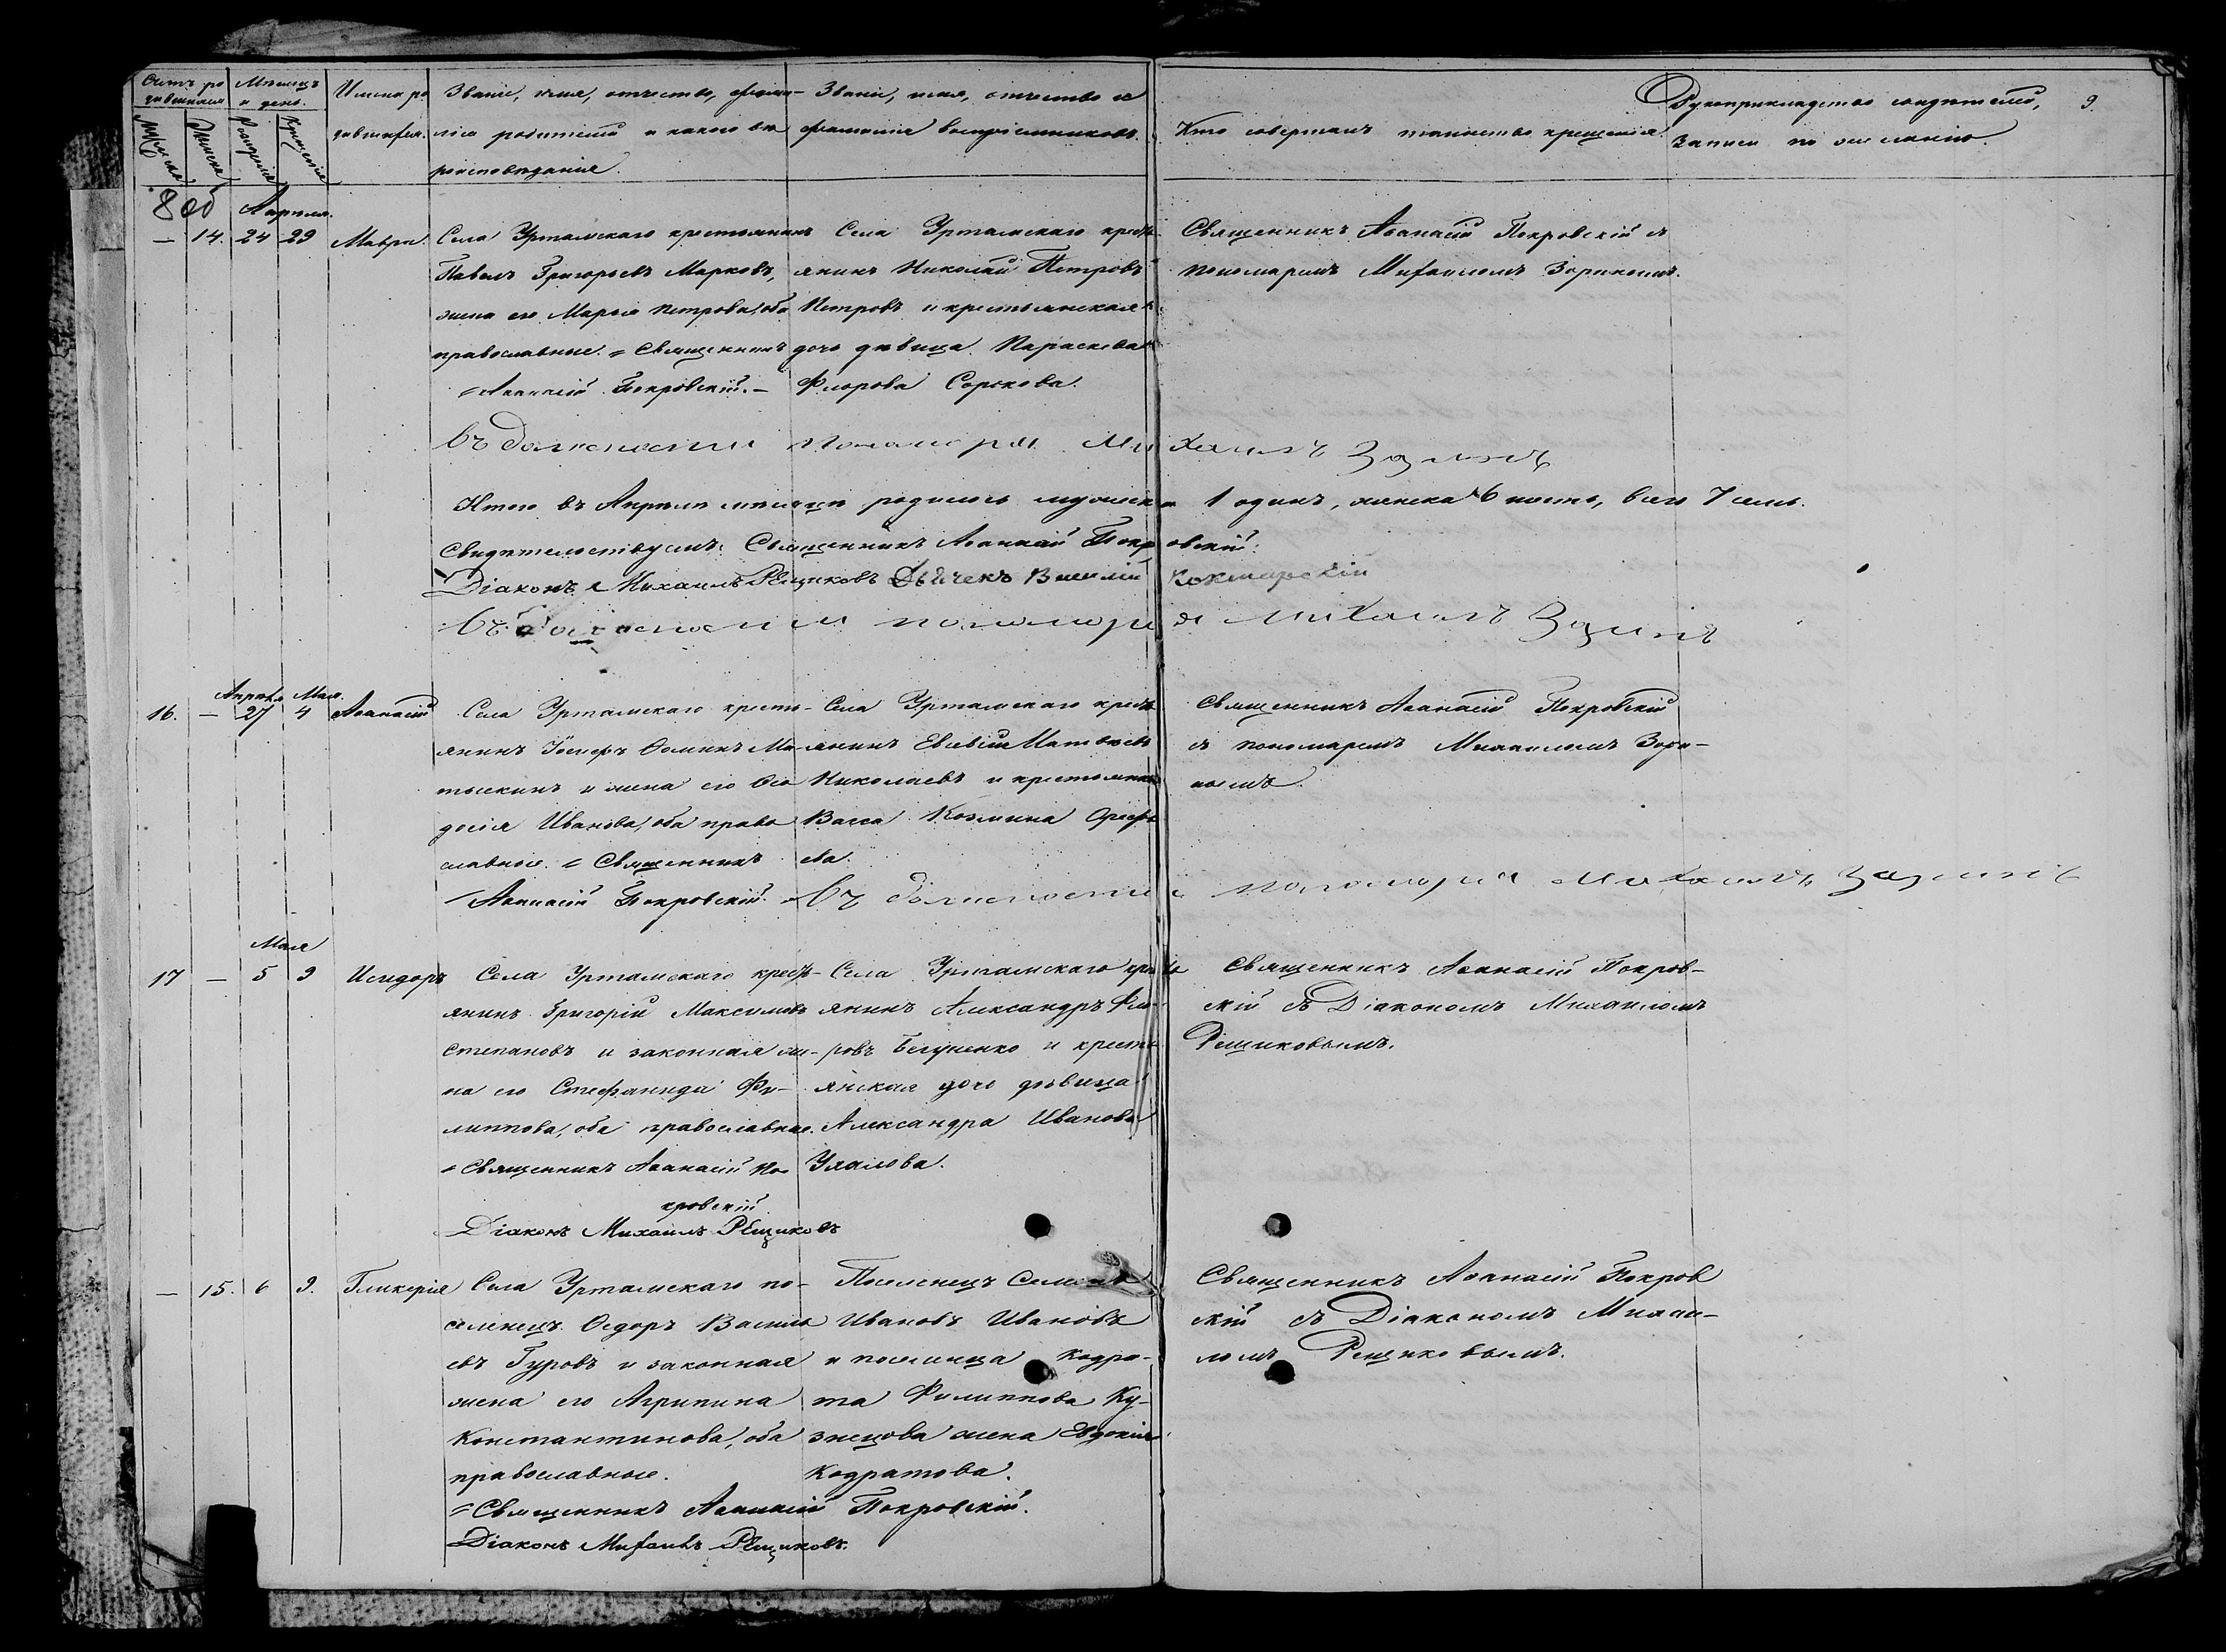 Счетъ ро
дившихся
Мѣсяцъ
и день.
Мужеска
Женска
Рожденія
Крещенія
Имена ро
дившихся.
Званіе, имя, отчество, фами-
лія родителей и какого вѣ
роисповѣданія.
Званіе, имя, отчество и
фамилія воспріемниковъ.
Кто совершалъ таинство крещенія.
Рукоприкладство свидѣтелей,
записи по желанію.
9
8 об
Апрѣля.
— 14. 24 29 Мавра.
Села Уртамскаго крестьянинъ
Павелъ Григорьевъ Марковъ,
жена его Марья Петрова, оба
православные. Священникъ
Аѳанасій Покровскій.
Села Уртамскаго кресть
янинъ Николай Петровъ
Петровъ и крестьянская
дочь дѣвица Параскева
Флорова Сорокова.
Священникъ Аѳанасій Покровскій съ
пономаремъ Михаиломъ Зоринымъ.
въ должности пономаря Михаилъ Зоринъ
Итого въ Апрѣлѣ мѣсяцѣ родилось мужска 1 одинъ, женска 6 шесть, всего 7 семь.
Свидѣтельствуемъ: Священникъ Аѳанасій Покровскій.
Діаконъ Михаилъ Рещиковъ Дьячекъ Василій
въ должности пономаря Михаилъ Зоринъ
Апрѣля Мая
16. — 27 4 Аѳанасій
Села Уртамскаго кресть-
янинъ Іосифъ Ѳоминъ Ма-
тыскинъ и жена его Ѳео
досія Иванова, оба право
славные. Священникъ
Аѳанасій Покровскій.
Села Уртамскаго кресть
янинъ Евсевій Матвѣевъ
Николаевъ и крестьянка
Васса Козмина Орефь
ева.
Священникъ Аѳанасій Покровскій
съ пономаремъ Михаиломъ Зори-
нымъ.
въ должности пономаря Михаилъ Зоринъ
Мая
17 — 5 9 Исидоръ
Села Уртамскаго кресть-
янинъ Григорій Максимовъ
Степановъ и законная же-
на его Стефанида Фи-
липпова, оба православные.
Священникъ Аѳанасій По-
кровскій
Діаконъ Михаилъ Рещиковъ
Села Уртамскаго кресть
янинъ Александръ Фло-
ровъ Безуненко и кресть
янская дочь дѣвица
Александра Иванова
Ухалова.
Священникъ Аѳанасій Покров-
скій съ Діакономъ Михаиломъ
Рещиковымъ.
— 15. 6 9. Гликерія
Села Уртамскаго по-
селенецъ Ѳедоръ Василь
евъ Гуровъ и законная
жена его Агрипина
Константинова, оба
православные.
Священникъ Аѳанасій Покровскій.
Діаконъ Михаилъ Рещиковъ.
Поселенецъ Семенъ
Ивановъ Ивановъ
и поселенца Кодра-
та Филиппова Ку-
знецова жена Евдокія
Кодратова.
Священникъ Аѳанасій Покров
скій съ Діакономъ Михаи-
ломъ Рещиковымъ.